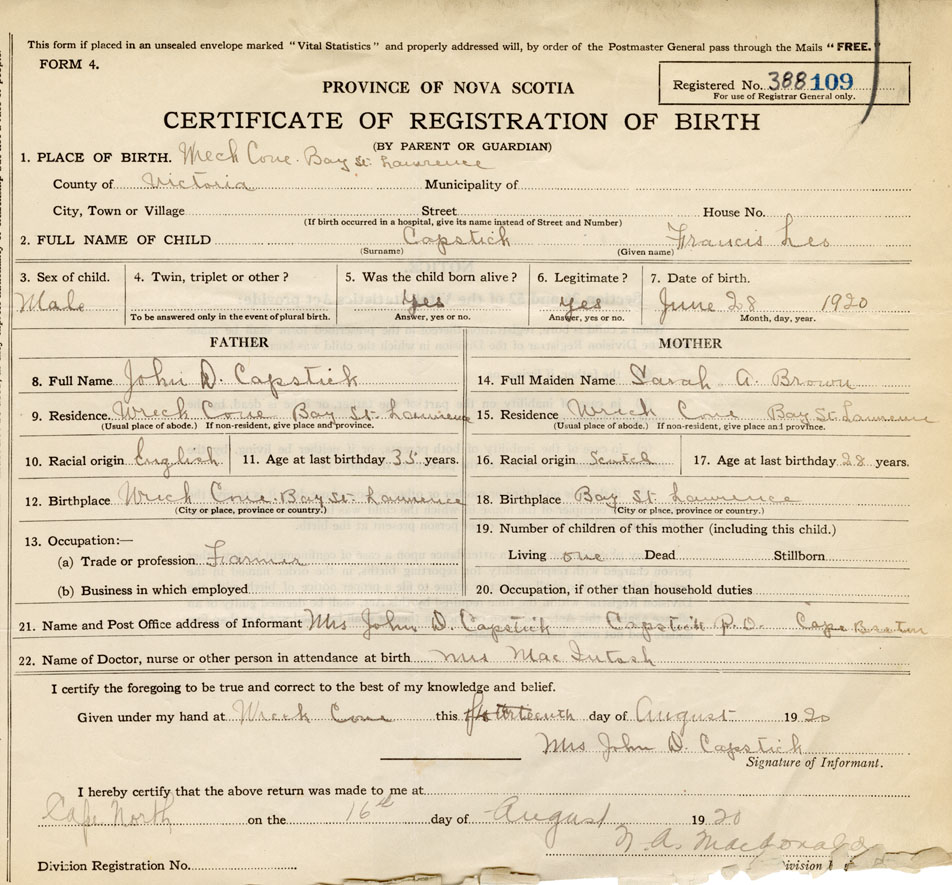 This form if placed in an unsealed envelope marked "Vital Statistics" and properly addressed will, by order of the Postmaster General pass through the Mails "FREE."
FORM 4.
Registered No. 388 109
For use of Registrar General only.
PROVINCE OF NOVA SCOTIA
CERTIFICATE OF REGISTRATION OF BIRTH
(BY PARENT OR GUARDIAN)
1. PLACE OF BIRTH. Wreck Cove. Bay St. Lawrence
County of Victoria Municipality of
City, Town or Village Street House No.
(If birth occurred in a hospital, give its name instead of Street and Number)
2. FULL NAME OF CHILD Capstick Francis Leo
(Surname) (Given name)
3. Sex of child. 4. Twin, triplet or other? 5. Was the child born alive? 6. Legitimate? 7. Date of birth.
Male Yes Yes June 28 1920
To be answered only in the event of plural birth. Answer, yes or no. Answer, yes or no. Month, day, year.
FATHER MOTHER
8. Full Name John D. Capstick 14. Full Maiden Name Sarah A. Brown
9. Residence. Wreck Cove Bay St. Lawrence 15. Residence Wreck Cove Bay St. Lawrence
(Usual place of abode.) If non-resident, give place and province. (Usual place of abode.) If non-resident, give place and province.
10. Racial origin English 11. Age at last birthday 35 years. 16. Racial origin Scotch 17. Age at last birthday 28 years.
12. Birthplace Wreck Cove. Bay St. Lawrence 18. Birthplace Bay St. Lawrence
(City or place, province or country.) (City or place, province or country.)
13. Occupation:— 19. Number of children of this mother (including this child.)
(a) Trade or profession Farmer Living one Dead Stillborn
(b) Business in which employed 20. Occupation, if other than household duties
21. Name and Post Office address of Informant Mrs John D. Capstick Capstick P.O. Cape Breton
22. Name of Doctor, nurse or other person in attendance at birth Mrs MacIntosh
I certify the foregoing to be true and correct to the best of my knowledge and belief.
Given under my hand at Wreck Cove this fourteenth day of August 1920
Mrs John D. Capstick
Signature of Informant.
I hereby certify that the above return was made to me at
Cape North on the 16th day of August 1920
N. A. MacDonald
Division Registration No.